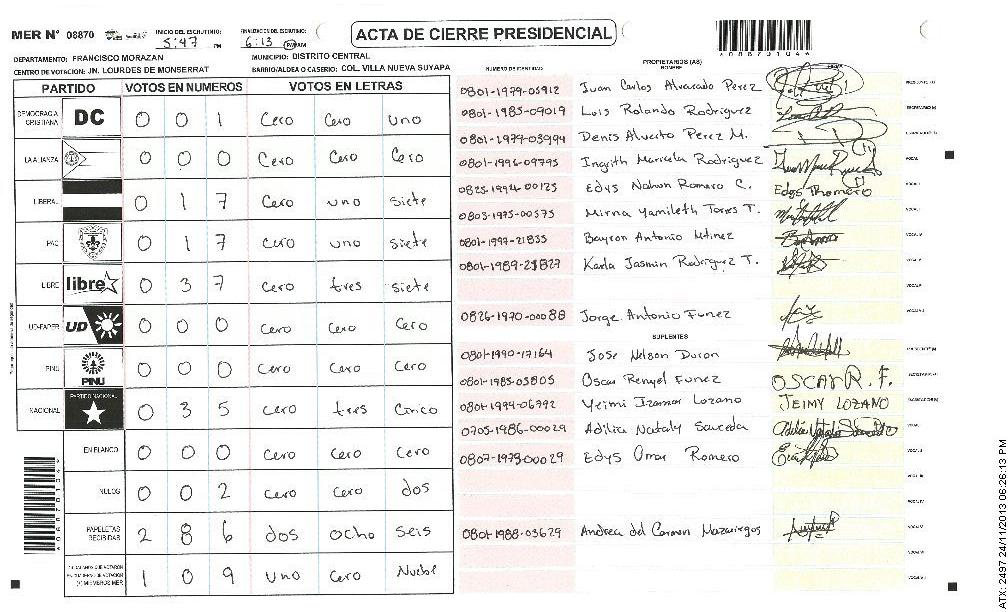 MER N° 08870
INICIO DEL ESCRUTINIO: 5:47 PM
FINALIZACION DEL ESCRUTINIO: 6:13 PM AM
ACTA DE CIERRE PRESIDENCIAL
DEPARTAMENTO: FRANCISCO MORAZAN
MUNICIPIO: DISTRITO CENTRAL
CENTRO DE VOTACION: JN. LOURDES DE MONSERRAT
BARRIO/ALDEA O CASERIO: COL. VILLA NUEVA SUYAPA
PARTIDO VOTOS EN NUMEROS VOTOS EN LETRAS
DEMOCRACIA CRISTIANA DC 0 0 1 Cero Cero uno
LA ALIANZA 0 0 0 Cero Cero Cero
LIBERAL 0 1 7 Cero uno siete
PAC 0 1 7 Cero uno siete
LIBRE libre 0 3 7 Cero tres siete
UD-FAPER UD 0 0 0 Cero Cero Cero
PINU PINU 0 0 0 Cero Cero Cero
NACIONAL PARTIDO NACIONAL 0 3 5 Cero tres Cinco
EN BLANCO 0 0 0 Cero Cero Cero
NULOS 0 0 2 Cero Cero dos
PAPELETAS RECIBIDAS 2 8 6 dos ocho seis
CIUDADANOS QUE VOTARON EN CUADERNO DE VOTACION (+) MIEMBROS MER 1 0 9 Uno Cero Nueve
NUMERO DE IDENTIDAD PROPIETARIOS (AS) NOMBRE FIRMA
0801-1979-05912 Juan Carlos Alvarado Perez
0801-1985-09019 Luis Rolando Rodriguez
0801-1979-03994 Denis Alverto Perez M.
0801-1996-09795 Ingrith Maricela Rodriguez
0825-1994-00125 Edys Nahun Romero C. Edys Romero
0803-1975-00575 Mirna Yamileth Torres T.
0801-1997-21835 Bayron Antonio Mtinez
0801-1989-23829 Karla Jasmin Rodriguez T.
0826-1970-00088 Jorge Antonio Funez
SUPLENTES
0801-1990-17164 Jose Nelson Duron
0801-1985-05805 Oscar Renyel Funez OSCAR R. F.
0801-1994-06792 Yeimi Izamar Lozano JEIMY LOZANO
0705-1986-00029 Adilia Nataly Sauceda
0807-1979-00029 Edys Omar Romero
0801-1988-03679 Andrea del Carmen Mazariegos
ATX: 2497 24/11/2013 06:26:13 PM